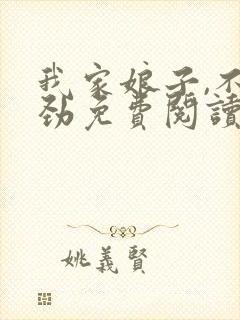 我家娘子,不
劲免費閱讀
姚義賢